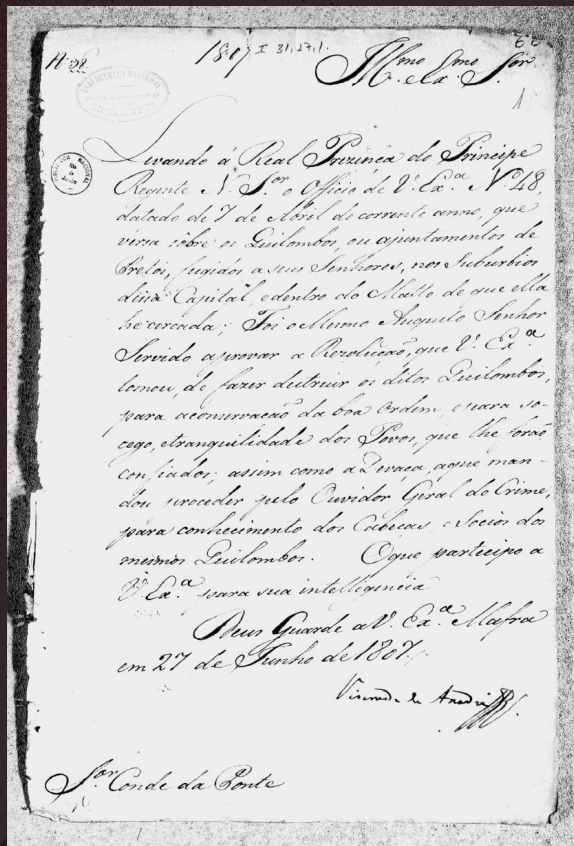 Nº 28.
1807
I 31,27,1.
Illmo Exmo Sor
1
BIBLIOTHECA NACIONAL
Levando á Real Prezinça do Principe
Regente N. S.or o Officio de V. Ex.a Nº 48,
datado de 7 de Abril do corrente anno, que
versa sobre os Quilombos, ou ajuntamentos de
Pretos, fugidos a seus Senhores, nos Suburbios
dessa Capital, e dentro do Matto de que ella
he cercada; Foi o Mesmo Augusto Senhor
Servido aprovar a Rezolução, que V. Ex.a
tomou, de fazer destruir os ditos Quilombos,
para a conservação da boa Ordem, e para so-
cego, e tranquilidade dos Povos, que lhe forão
confiados; assim como a Devaça, a que man-
dou proceder pelo Ouvidor Geral do Crime,
para conhecimento dos Cabeças, e Socios dos
mesmos Quilombos. O que participo a
V. Ex.a para sua intelligencia
Deus Guarde a V. Ex.a Mafra
em 27 de Junho de 1807.
Visconde de Anadia
S.or Conde da Ponte